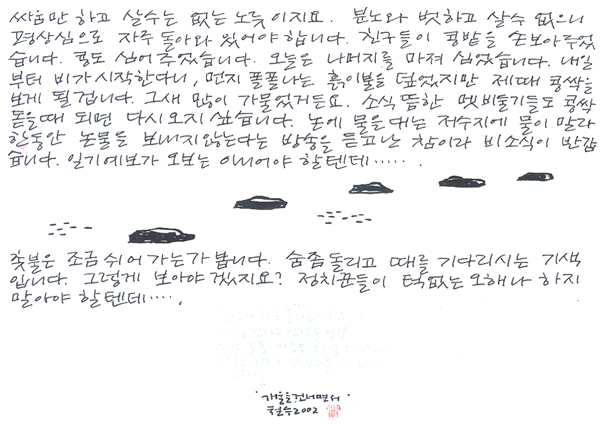 싸움만 하고 살수는 없는 노릇이지요. 분노와 벗하고 살수 없으니
평상심으로 자주 돌아와 있어야 합니다. 친구들이 콩밭을 손보아주었
습니다. 콩도 심어주었습니다. 오늘은 나머지를 마저 심었습니다. 내일
부터 비가 시작한다니, 먼지 폴폴나는 흙이불을 덮었지만 제때 콩싹을
보게 될겁니다. 그새 많이 가물었거든요. 소식 뜸한 멧비둘기들도 콩싹
돋을때 되면 다시오지 싶습니다. 논에 물을 대는 저수지에 물이 말라
한동안 논물을 보내지않는다는 방송을 듣고난 참이라 비소식이 반갑
습니다. 일기예보가 오보는 아니어야 할텐데…….
촛불은 조금 쉬어 가는가 봅니다. 숨좀돌리고 때를 기다리시는 기색
입니다. 그렇게 보아야 겠지요? 정치꾼들이 턱없는 오해나 하지
말아야 할텐데….
개울을건너면서
철수2002